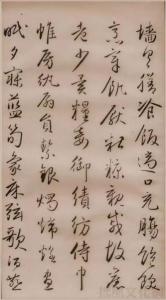 墻具膳飡飯適口充腸飽飫
烹宰飢猒糟糠親戚故舊
老少異糧妾御績紡侍巾
帷房紈扇員絜銀燭煒煌晝
眠夕寐藍筍象床弦歌酒讌